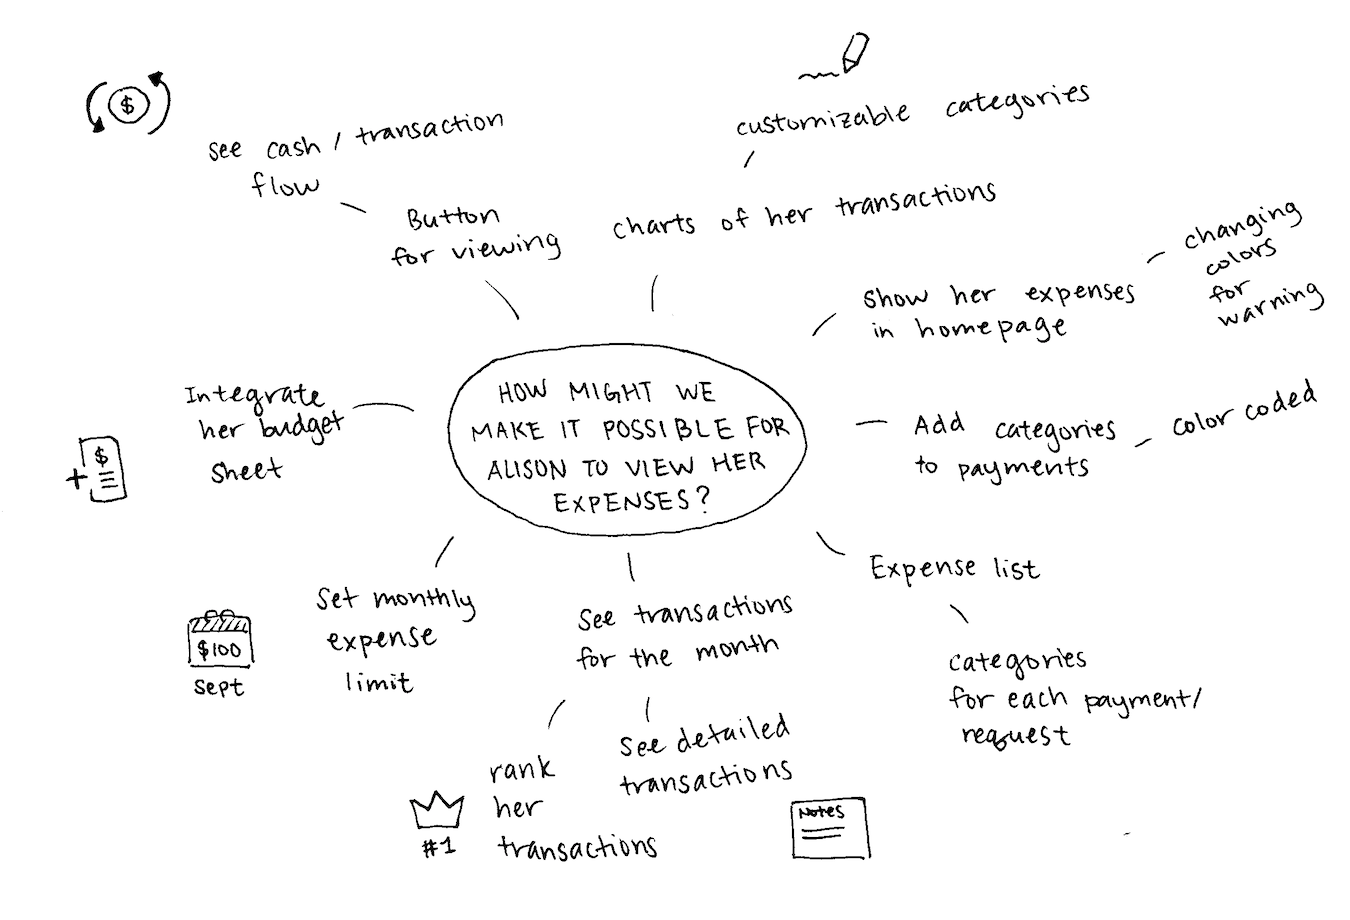 $
see cash / transaction
flow
Button
for viewing
customizable categories
charts of her transactions
changing
colors
for
warning
Show her expenses
in homepage
HOW MIGHT WE
MAKE IT POSSIBLE FOR
ALISON TO VIEW HER
EXPENSES?
Integrate
her budget
sheet
+ $
Add categories
to payments
color coded
Expense list
categories
for each payment/
request
Set monthly
expense
limit
$100
Sept
See transactions
for the month
see detailed
transactions
rank
her
transactions
#1
Notes